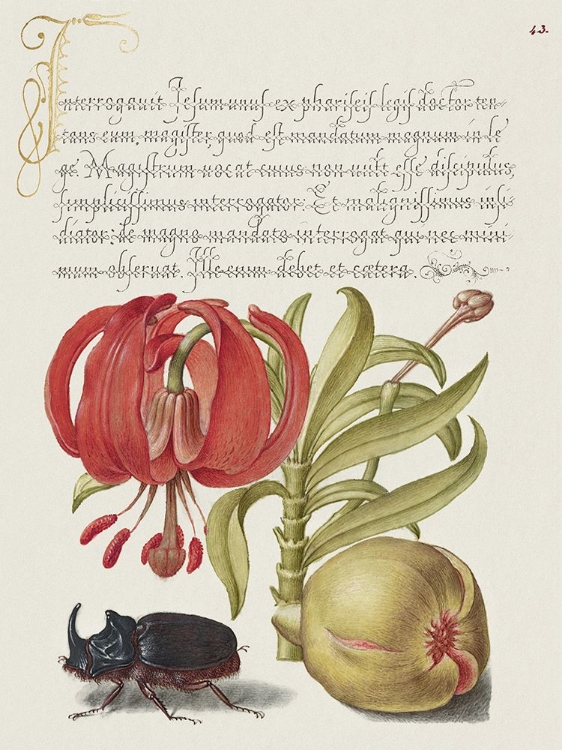 43.
Interrogavit Jesum unus ex phariseis legis doctor ten,
tans eum, magister, quod est mandatum magnum in le
ge. Magistrum vocat cuius non vult esse discipulus,
simplicissimus interrogator. Et malignissimus insi,
diator: de magno mandato interrogat qui nec mini
mum observat. Ille enim debet et cætera.